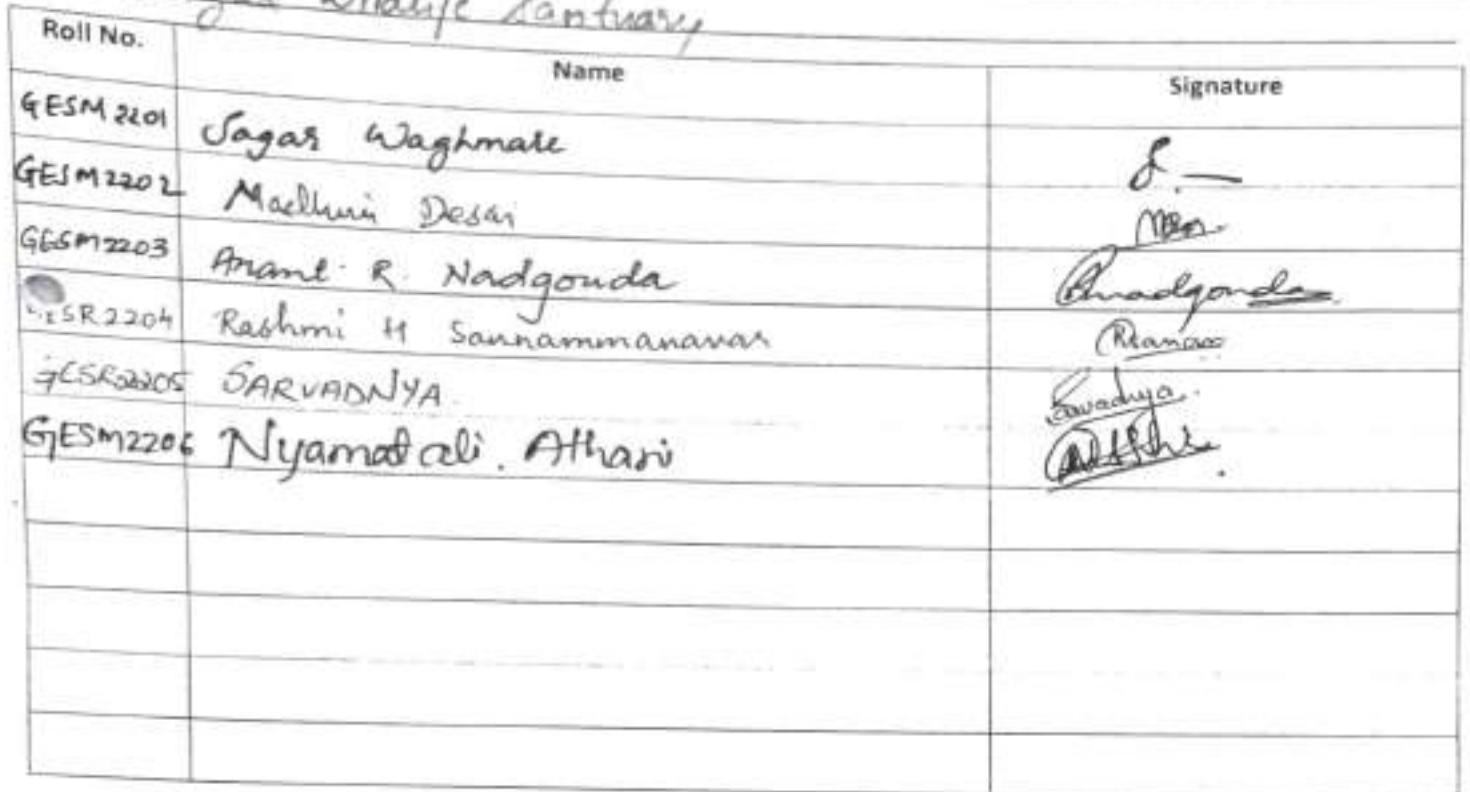 Wildlife Santuary
Roll No. Name Signature
GESM 2201 Sagar Waghmare
GESM2202 Madhuri Desai
GESM2203 Anant R. Nadgouda Anadgonda
SR2204 Rashmi H Sannammanavar
GESR2205 SARVADNYA Savadnya
GESM2206 Nyamatali. Athani